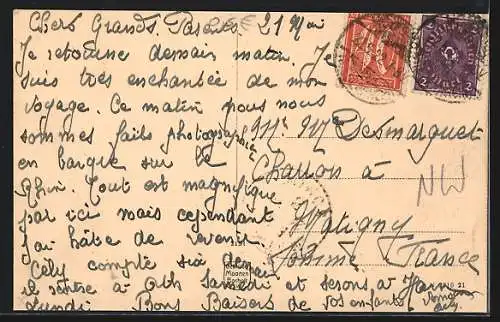 Chers Grands Parents 21 Mai
Je retourne demain matin. Je
suis très enchantée de mon
voyage. Ce matin nous nous
sommes faits photographier
en barque sur le
Rhin. Tout est magnifique
par ici mais cependant
j'ai hâte de revenir
Cély compte
rentrer à Ath Samedi et serons à
Lundi Bons Baisers de vos enfants
Mr M Desmarquet
Charron à
Matigny
Somme France
NW
21
2 2